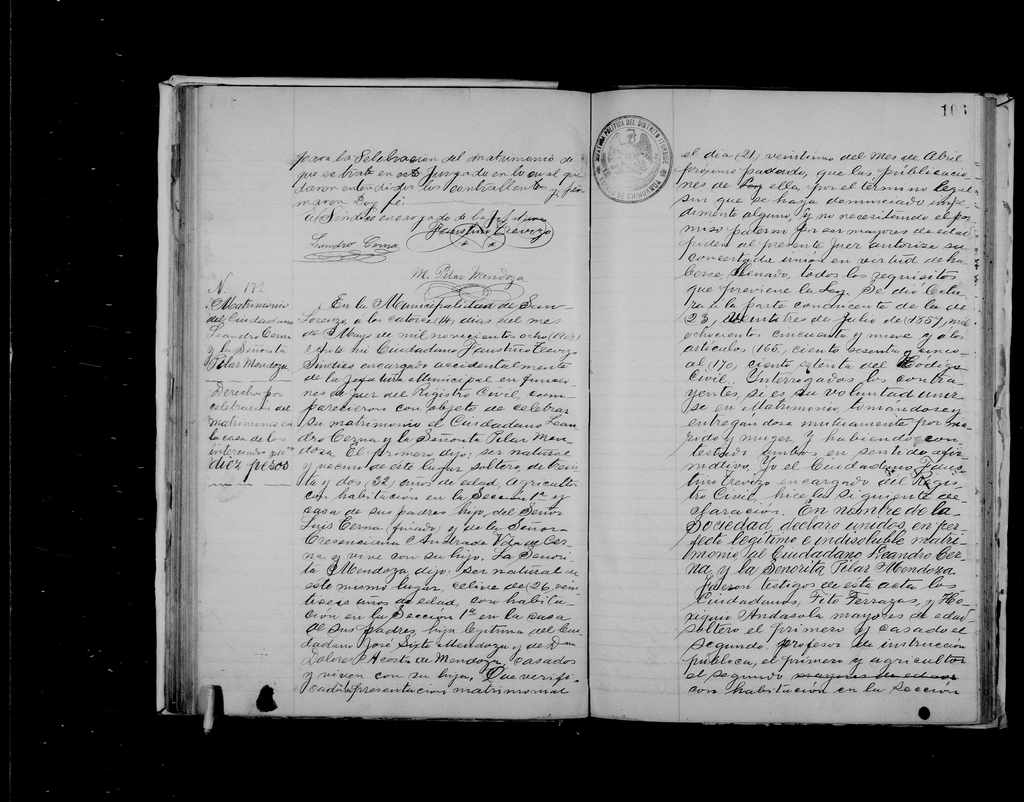 para la Selebracion del matrimonio de
que se trata en este Juzgado en lo cual que
daron entendidos los contrallentes y fir
maron Doy fé
El Sindico encargado de la Jefatura
Faustino Trevizo
Leandro Cerna
M. Pilar Mendoza
N. 172
Matrimonio
del Ciudadano
Leandro Cerna
y la Señorita
Pilar Mendoza
Derechos por
celebracion del
matrimonio en
la casa de los
interesados
diez pesos
En la Municipalidad de San
Lorenzo a los catorce (14) dias del mes
de Mayo de mil novecientos ocho (1908)
Ante mi Ciudadano Faustino Trevizo
Sindico encargado accidentalmente
de la Jefatura Municipal en funcio
nes de juez del Registro Civil, com
parecieron con objeto de celebrar
su matrimonio el Ciudadano Lean
dro Cerna y la Señorita Pilar Men
doza. El primero dijo: ser natural
y vecino de este lugar soltero de trein
ta y dos (32) años de edad, agricultor
con habitación en la Sección 1ª y
casa de sus padres hijo, del Señor
Luis Cerna (finado) y de la Señora
Cresenciana Andrada Vda de Cer
na y vive con su hijo. La Señori
ta Mendoza dijo: ser natural de
este mismo lugar celive de (26) vein
tiseis años de edad, con habita
ción en la Sección 1ª en la casa
de sus padres, hija legitima del Ciu
dadano José Sixto Mendoza y de Doña
Dolores Acosta de Mendoza, casados
y viven con su hija, Que verifi
cada la presentacion matrimonial
106
JEFATURA POLITICA DEL DISTRITO
DE CHIHUAHUA
el dia (21) veintiuno del mes de Abril
proximo pasado, que las publicacio
nes de Ley ella por el termino legal
sin que se haya denunciado impe
dimento alguno, y no necesitando el per
miso paterno por ser mayores de edad
piden al presente juez autorize su
concertada unión en virtud de ha
berse llenado, todos los requisitos
que previene la Ley. Se dió lectu
ra a la parte conducente de la de
23, veintitres de Julio de (1859) mil
ochocientos cincuenta y nueve y a los
articulos (165) ciento sesenta y cinco
al (170) ciento setenta del Código
Civil. Interrogados los contra
yentes, si es su voluntad unir
se en Matrimonio, tomándose y
entregandosa mutuamente por ma
rido y mujer, y habiendo con
testado ambos en sentido afir
mativo. Yo el Ciudadano Faus
tino Trevizo encargado del Regis
tro Civil, hice la siguiente de
claración. En nombre de la
Sociedad, declaro unidos, en per
fecto legitimo e indisoluble matri
monio al Ciudadano Leandro Cer
na, y la Señorita Pilar Mendoza.
Fueron testigos de esta acta los
Ciudadanos, Tito Terrazas, y
Andasola mayores de edad
soltero el primero y casado el
segundo, profesor de instrucción
publica, el primero y agricultor
el segundo mayores de edad
con habitación en la sección